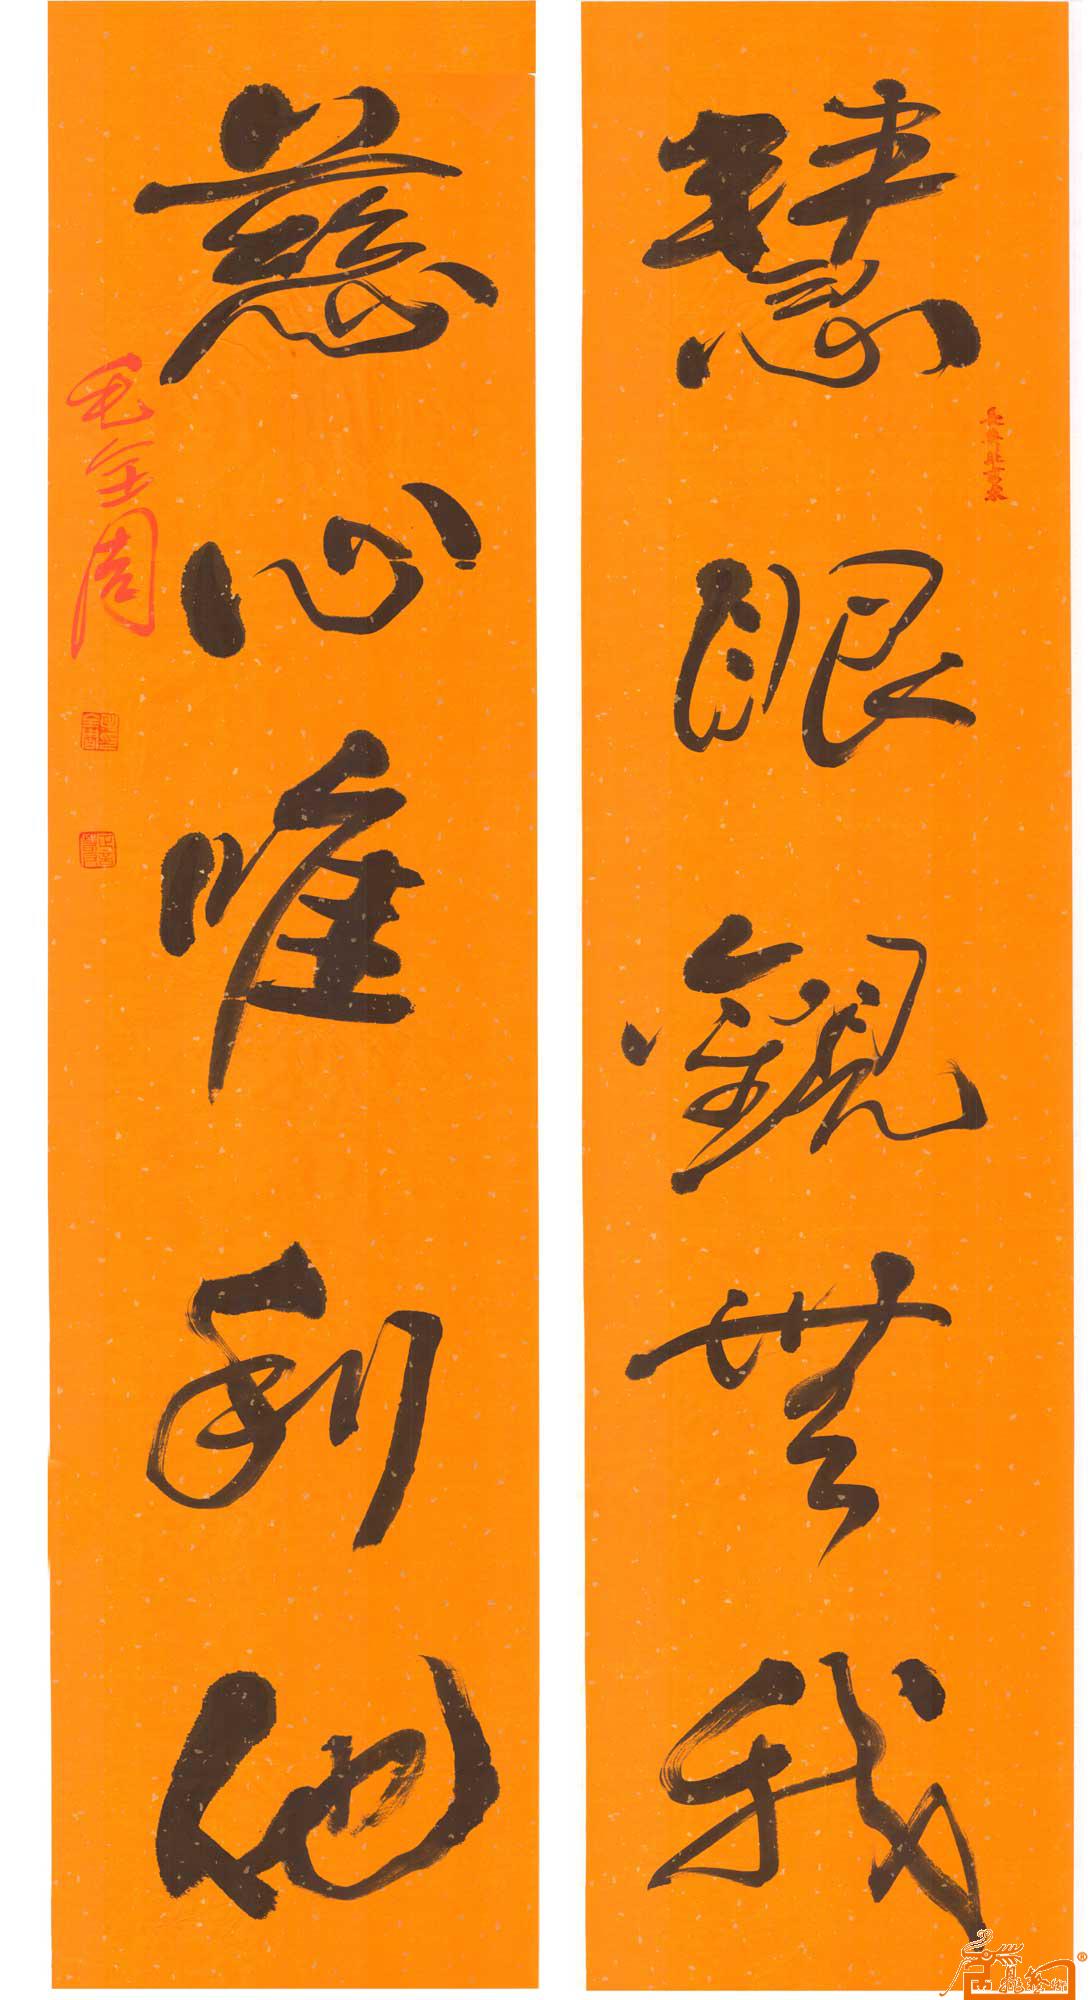 慧眼觀無我
慈心唯利他
毛金周